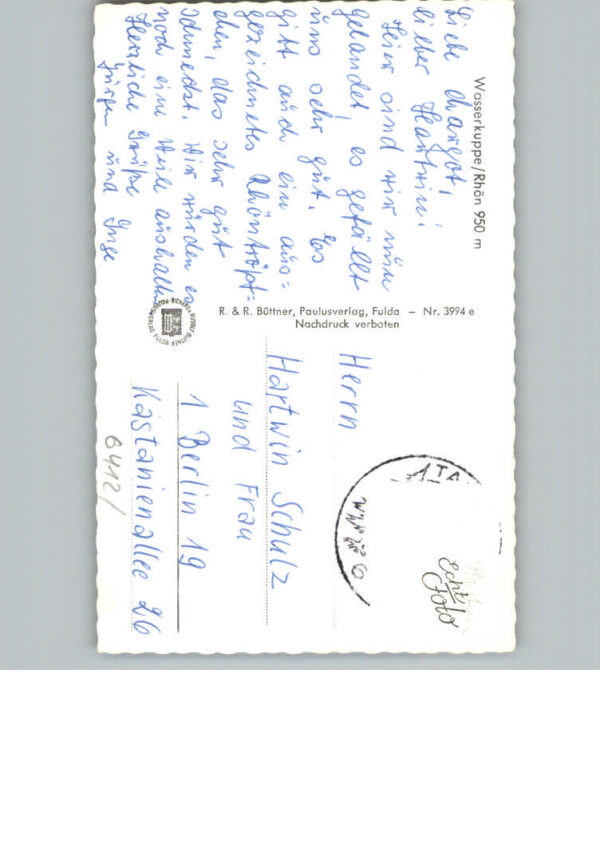 Wasserkuppe/Rhön 950 m
Liebe Margot,
lieber Hartwin!
Hier sind wir nun
gelandet, es gefällt
uns sehr gut. Es
gibt auch ein aus=
gezeichnetes Rhöntröpf=
chen, das sehr gut
schmeckt. Wir würden es
noch eine Weile aushalten
Herzliche Grüße
Jürgen und Inge
R. & R. Büttner, Paulusverlag, Fulda — Nr. 3994 e
Nachdruck verboten
Herrn
Hartwin Schulz
und Frau
1 Berlin 19
Kastanienallee 26
6412/
Echt
Foto